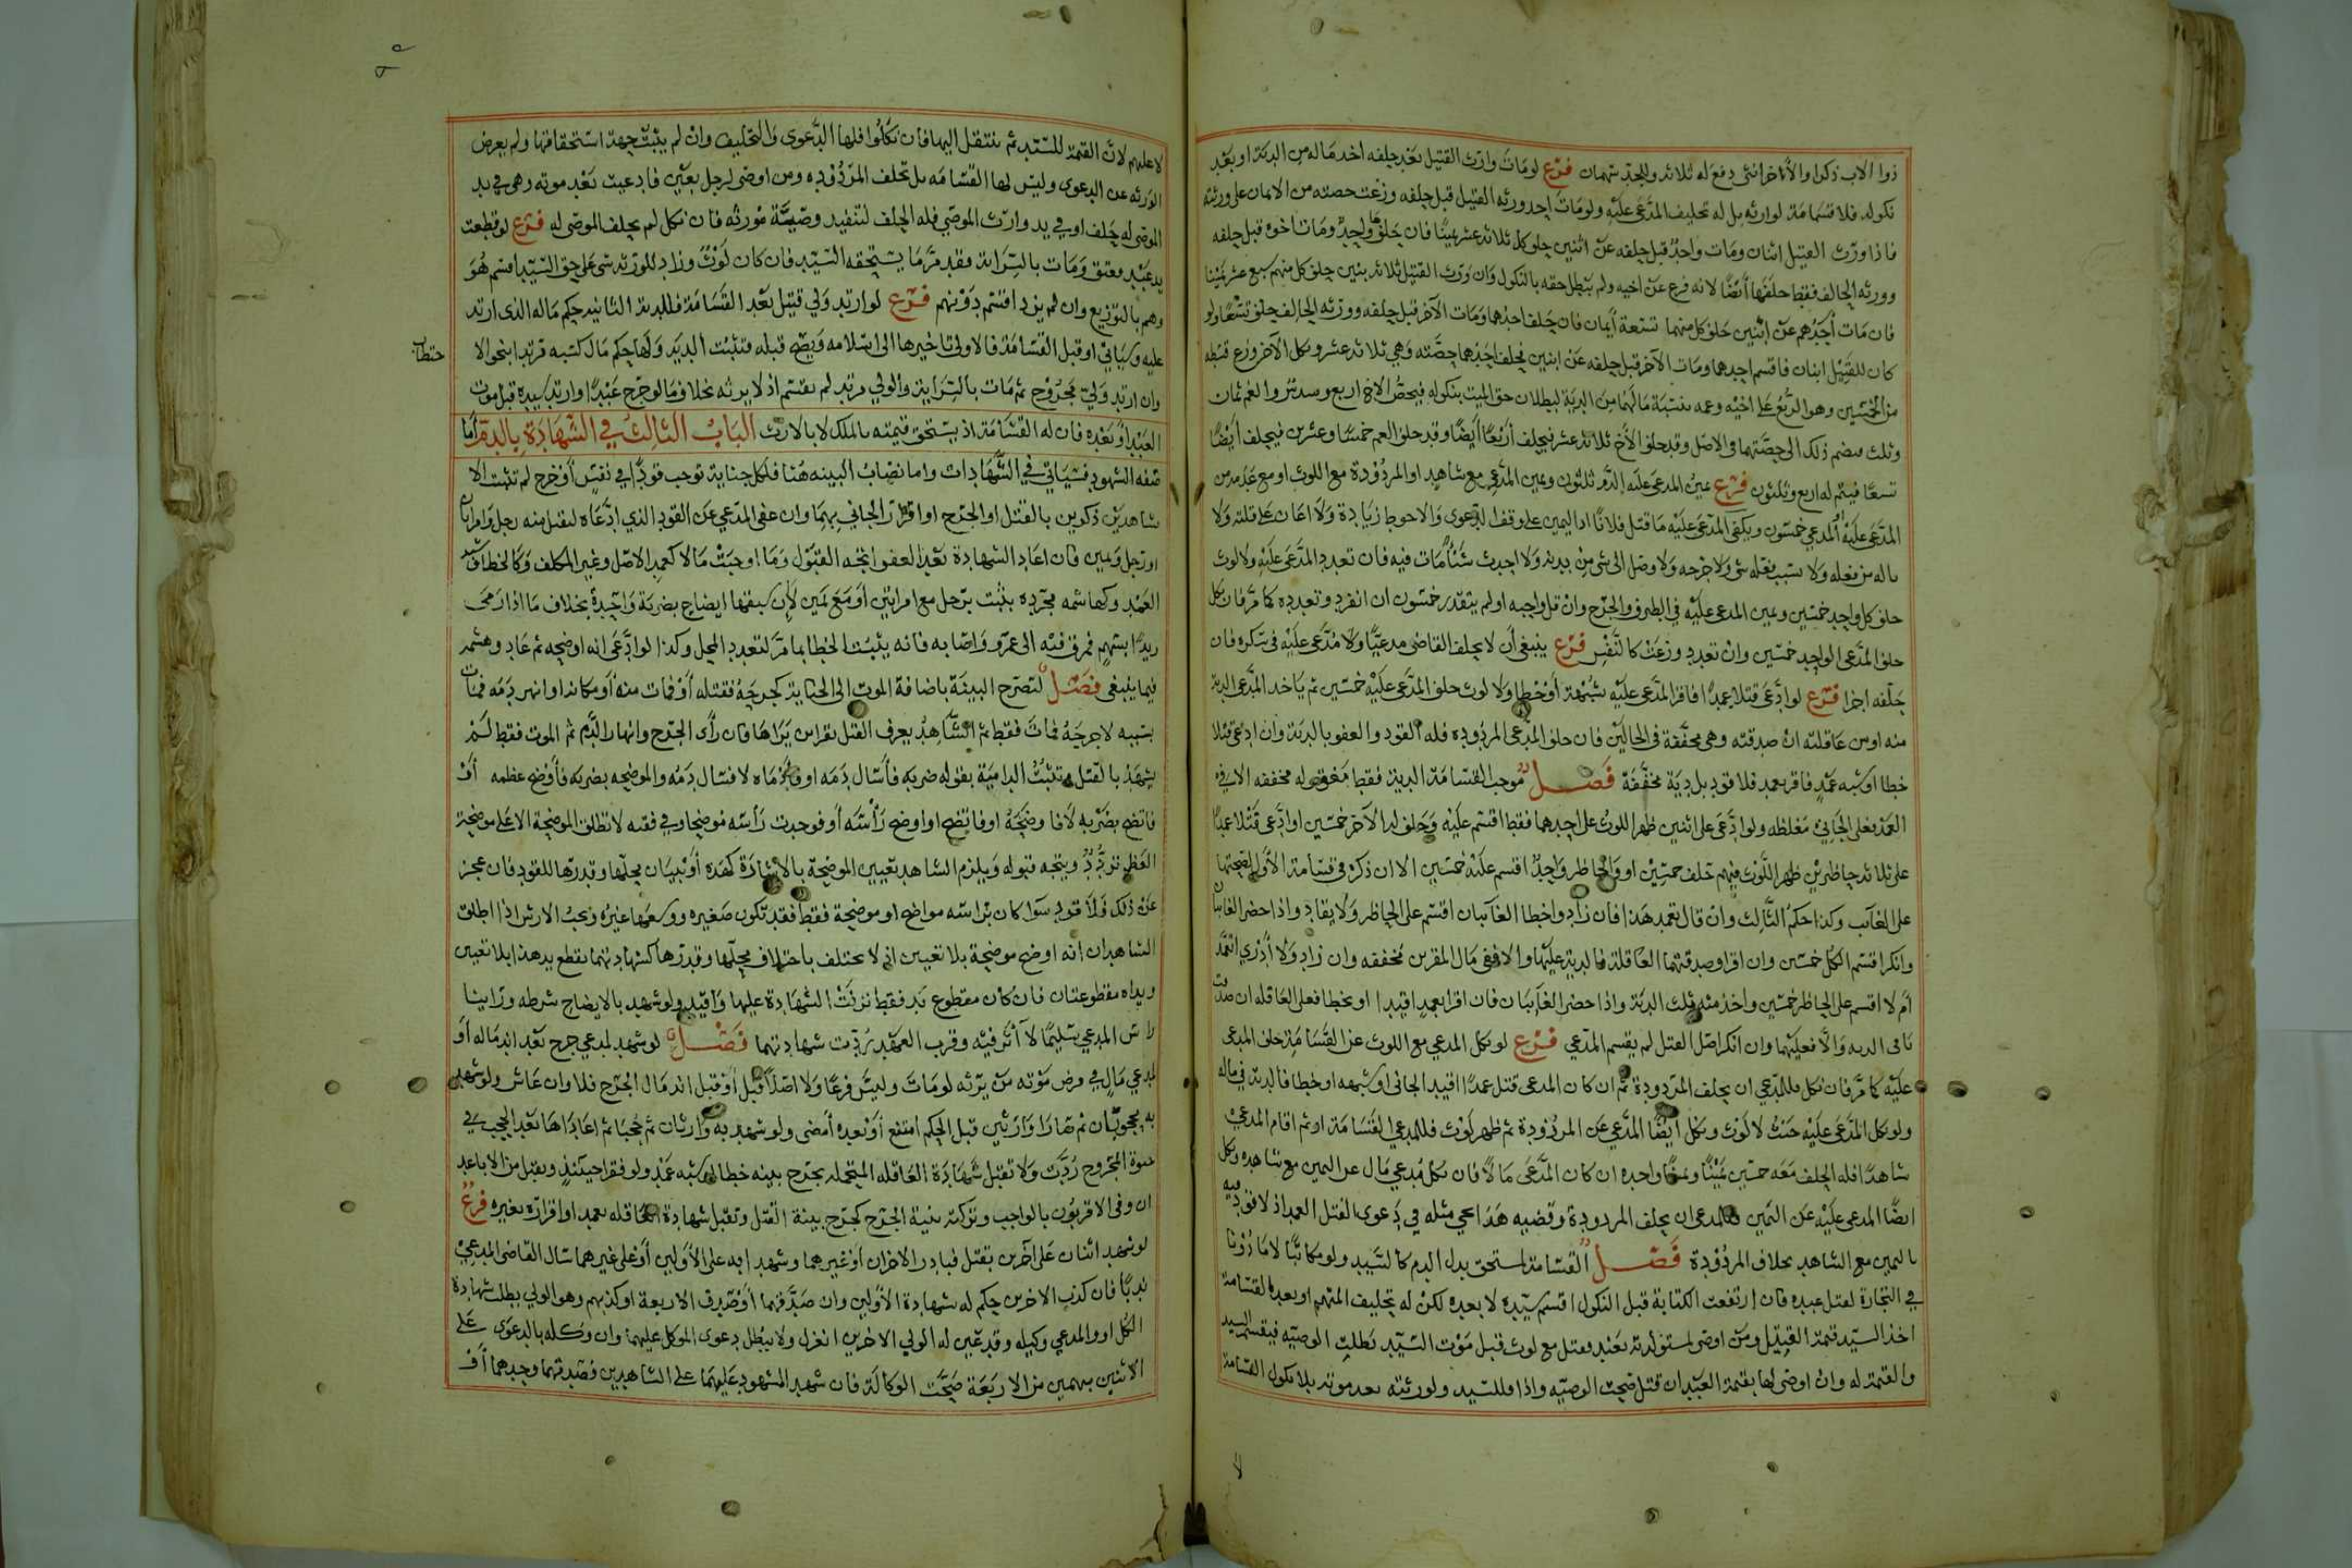 ذوا الاب ذكرا والآخر انثى دفع له ثلاثة والجد سهمان فرع لو مات وارث القتيل بعد حلفه اخذ ماله من الدية او بعد
نكوله فلا قسامة لوارثه بل له تحليف المدعى عليه ولو مات احد ورثة القتيل قبل حلفه وزعت حصته من الايمان على ورثته
فاذا ورث القتيل اثنان ومات واحد قبل حلفه عن اثنين حلف كل ثلاثة عشر يمينًا فان حلف واحد ومات اخوه قبل حلفه
وورثه الحالف فقط حلفها أيضًا لانه فرع عن اخيه ولم يبطل حقه بالنكول وان ورث القتيل ثلاثة بنين حلف كل منهم سبع عشر يمينا
فان مات أحدهم عن اثنين حلف كل منهما تسعة أيمان فان حلف احدهما ومات الآخر قبل حلفه وورثه الحالف حلف تسعًا ولو
كان للقتيل ابنان فاقسم احدهما ومات الآخر قبل حلفه عن ابنين فحلف احدهما حصته وهي ثلاثة عشر ونكل الآخر وزع قسطه
من الخمسين وهو الربع على اخيه وعمه بنسبة مالهما من الدية لبطلان حق الميت بنكوله فيخص الاخ اربع وسدس والعم ثمان
وثلث فيضم ذلك الى حصتهما في الاصل وقد حلف الأخ ثلاثة عشر فيحلف أربعًا أيضًا وقد حلف العم خمسًا وعشرين فيحلف أيضًا
تسعًا فيتم له اربع وثلثون فرع يمين المدعى عليه الدم ويمين المدعي مع شاهد او المردودة مع اللوث او مع عدمه من
المدعى عليه للمدعي خمسون ويكفي المدعى عليه ما قتل فلانًا اذ اليمين على وفق الدعوى والاحوط زيادة ولا اعان على قتله ولا
ناله من فعله ولا بسبب فعله شي ولا جرحه ولا وصل الى شي من بدنه ولا احدث شيئًا مات فيه فان تعدد المدعى عليه ولا لوث
حلف كل واحد خمسين ويمين المدعى عليه في الطرف والجرح وان قل واجبه او لم يتقدر خمسون ان انفرد وتعدده كما مر فان نكل
حلف المدعي الواحد خمسين وان تعدد وزعت كالنفس فرع ينبغي أن لا يحلف القاضي مدعيًا ولا مدعى عليه في سكره فان
حلفه اجزا فرع لو ادعى قتلا عمدًا فاقر المدعى عليه بشبهة أو خطا ولا لوث حلف المدعى عليه خمسين ثم ياخذ المدعي الدية
منه او من عاقلته ان صدقته وهي مخففة في الحالين فان حلف المدعي المردوده فله القود والعفو بالدية وان ادعى قتلا
خطا او شبه عمد فاقر بعمد فلا قود بل دية مخففة فصل موجب القسامة الدية فقط مخففة الا في
العمد فعلى الجاني مغلظه ولو ادعى على اثنين ظهر اللوث على احدهما فقط اقسم عليه وحلف له الآخر خمسين او ادعى قتلا عمدًا
على ثلاثة حاضرين ظهر اللوث فيهم حلف خمسين او والحاضر واحد اقسم عليه خمسين الا ان ذكر في قسامة الأول لصحتها
على الغائب وكذا حكم الثالث وان قال تعمد هذا فان زاد واخطا الغائبان اقسم على الحاضر ولا يقاد واذا حضر الغائبان
وانكرا اقسم الكل خمسين وان اقرا وصدقتهما العاقلة فالدية عليها والا ففي مال المقرين مخففه وان زاد ولا أدري اتعمد
أم لا اقسم على الحاضر خمسين واخذ منه ثلث الدية واذا حضر الغائبان فان اقرا بعمد اقيدا او بخطا فعلى العاقله ان صدقت
باقي الدية والا فعليهما وان انكرا اصل القتل لم يقسم المدعي فرع لو نكل المدعي مع اللوث عن القسامة حلف المدعى
عليه كما مر فان نكل فللمدعي ان يحلف المردودة ثم ان كان المدعى قتل عمدًا اقيد الجاني او شبهه او خطا فالدية في ماله
ولو نكل المدعى عليه حيث لا لوث ونكل أيضًا المدعي عن المردودة ثم ظهر لوث فللمدعي القسامة او ثم اقام المدعي
شاهدًا فله الحلف معه خمسين يمينًا ويمينًا واحده ان كان المدعى مالًا فان نكل مدعي مال عن اليمين مع شاهده ونكل
ايضًا المدعى عليه عن اليمين فللمدعي ان يحلف المردودة وقضيه هذا يجي مثله في دعوى القتل العمد اذ لا قود فيه
باليمين مع الشاهد بخلاف المردودة فصل القسامة لمستحق بدل الدم كالسيد ولو مكاتبًا لا ماذونا
في التجارة لقتل عبده فان ارتفعت الكتابة قبل النكول اقسم سيده لا بعده لكن له تحليف المتهم او بعد القسامة
اخذ السيد قيمة القتيل ومن اوصى لمستولدته بعبد فقتل مع لوث قبل موت السيد بطلت الوصية فيقسم السيد
والقيمة له وان اوصى لها بقيمة العبد ان قتل صحت الوصيه واذا فللسيد ولورثته بعد موته بلا نكول القسامة
لا
لا عليهم لان القيمة للسيد ثم تنتقل اليها فان نكلوا فلها الدعوى والتحليف وان لم يثبت جهة استحقاقها ولم يعرض
الورثه عن الدعوى وليس لها القسامه بل تحلف المردوده ومن اوصى لرجل بعين فادعيت بعد موته وهي في يد
الموصى له حلف او في يد وارث الموصي فله الحلف لتنفيذ وصية مورثه فان نكل لم يحلف الموصى له فرع لو قطعت
يد عبد فعتق ومات بالسراية فقد مر ما يستحقه السيد فان كان لوث وزاد للورثة شي على حق السيد اقسم هو
وهم بالتوزيع وان لم يزد اقسم دونهم فرع لو ارتد ولي قتيل بعد القسامة فللدية الثانية حكم ماله الذي ارتد
عليه وسياتي او قبل القسامة فالاولى تاخيرها الى اسلامه ويصح قبله فتثبت الدية ولها حكم مال كسبه مرتد بنحو الا
حتطاب
وان ارتد ولي مجروح ثم مات بالسراية والولي مرتد لم يقسم اذ لا يرثه بخلاف ما لو جرح عبدًا وارتد سيده قبل موت
العبد أو بعده فان له القسامة اذ يستحق قيمته بالملك لا بالارث الباب الثالث في الشهادة بالدم أما
صفه الشهود فسياتي في الشهادات واما نصاب البينه هنا فلكل جناية توجب قودًا في نفس أو جرح لم تثبت الا
شاهدين ذكرين بالقتل او الجرح او اقرار الجاني بهما وان عفى المدعي عن القود الذي ادعاه ليقبل منه رجل وامراتان
او رجل ويمين فان اعاد الشهادة بعد العفو اتجه القبول وما اوجبت مالا كعمد الاصل وغير المكلف وكالخطا وشبه
العمد وكهاشمه مجردة يثبت برجل مع امراتين أو مع يمين لا ان سبقها ايضاح بضربة واحدة بخلاف ما اذا رمى
زيدًا بسهم فمرق منه الى عمرو واصابه فانه يثبت الخطا بما مر لتعدد المحل وكذا لو ادعى انه اوضحه ثم عاد وهشمه
فيما ينبغي فصل لتصرح البينة باضافة الموت الى الجناية كجرحه فقتله أو فمات منه أو مكانه او انهر دمه فمات
بسببه لا جرحه فمات فقط ثم الشاهد يعرف القتل بقراين يراها فان رأى الجرح وانهار الدم ثم الموت فقط لم
يشهد بالقتل وتثبت الدامية بقوله ضربه فأسال دمه او فادماه لا فسال دمه والموضحه بضربه فأوضح عظمه أو
فاتضح بضربه لا فاوضحه او فاتضح او اوضح رأسه أو فوجدت رأسه موضحا وفي فقيه لا تطلق الموضحة الا على موضحة
العظم تردد ويتجه قبوله ويلزم الشاهد تعيين الموضحة بالاشارة كهذه أو ببيان محلها وقدرها للقود فان عجز
عن ذلك فلا قود سوا كان براسه مواضح او موضحة فقط فقد تكون صغيره ووسعها غيره وتجب الارش اذا اطلق
الشاهدان انه اوضح موضحة بلا تعيين اذ لا يختلف باختلاف محلها وقدرها كشهادتهما بقطع يد هذا بلا تعيين
ويداه مقطوعتان فان كان مقطوع يد فقط نزلت الشهادة عليها واقيد ولو شهد بالايضاح شرطه وراينا
راس المدعي سليمًا لا أثر فيه وقرب العهد ردت شهادتهما فصل لو شهد لمدعي جرح بعد اندماله أو
لمدعي مال في مرض موته من يرثه لو مات وليس فرعًا ولا اصلًا قبل أو قبل اندمال الجرح فلا وان عاش ولو شهد
به محجوبان ثم صارا وارثين قبل الحكم امتنع أو بعده أمضى ولو شهد به وارثان ثم حجبا ثم اعاداها بعد الحجب في
حيوة المجروح ردت ولا تقبل شهادة العاقله المتحمله بجرح بينه خطا او شبه عمد ولو فقرا حينئذ ويقبل من الاباعد
ان وفى الاقربون بالواجب وتزكية بينة الجرح كجرح بينة القتل وتقبل شهادة العاقله بعمد او اقراره بغيره فرع
لو شهد اثنان على آخرين بقتل فبادر الاخران أو غيرهما وشهدا به على الأولين أو على غيرهما سال القاضي المدعي
ندبًا فان كذب الاخرين حكم له بشهادة الأولين وان صدقهما أو صدق الاربعة او كذبهم وهو الولي بطلت شهادة
الكل او والمدعي وكيله وقد عين له الولي الاخرين انعزل ولا يبطل دعوى الموكل عليهما وان وكله بالدعوى على
الاثنين مبهمين من الاربعة صحت الوكالة فان شهد المشهود عليهما على الشاهدين فصدقهما وحدهما أو